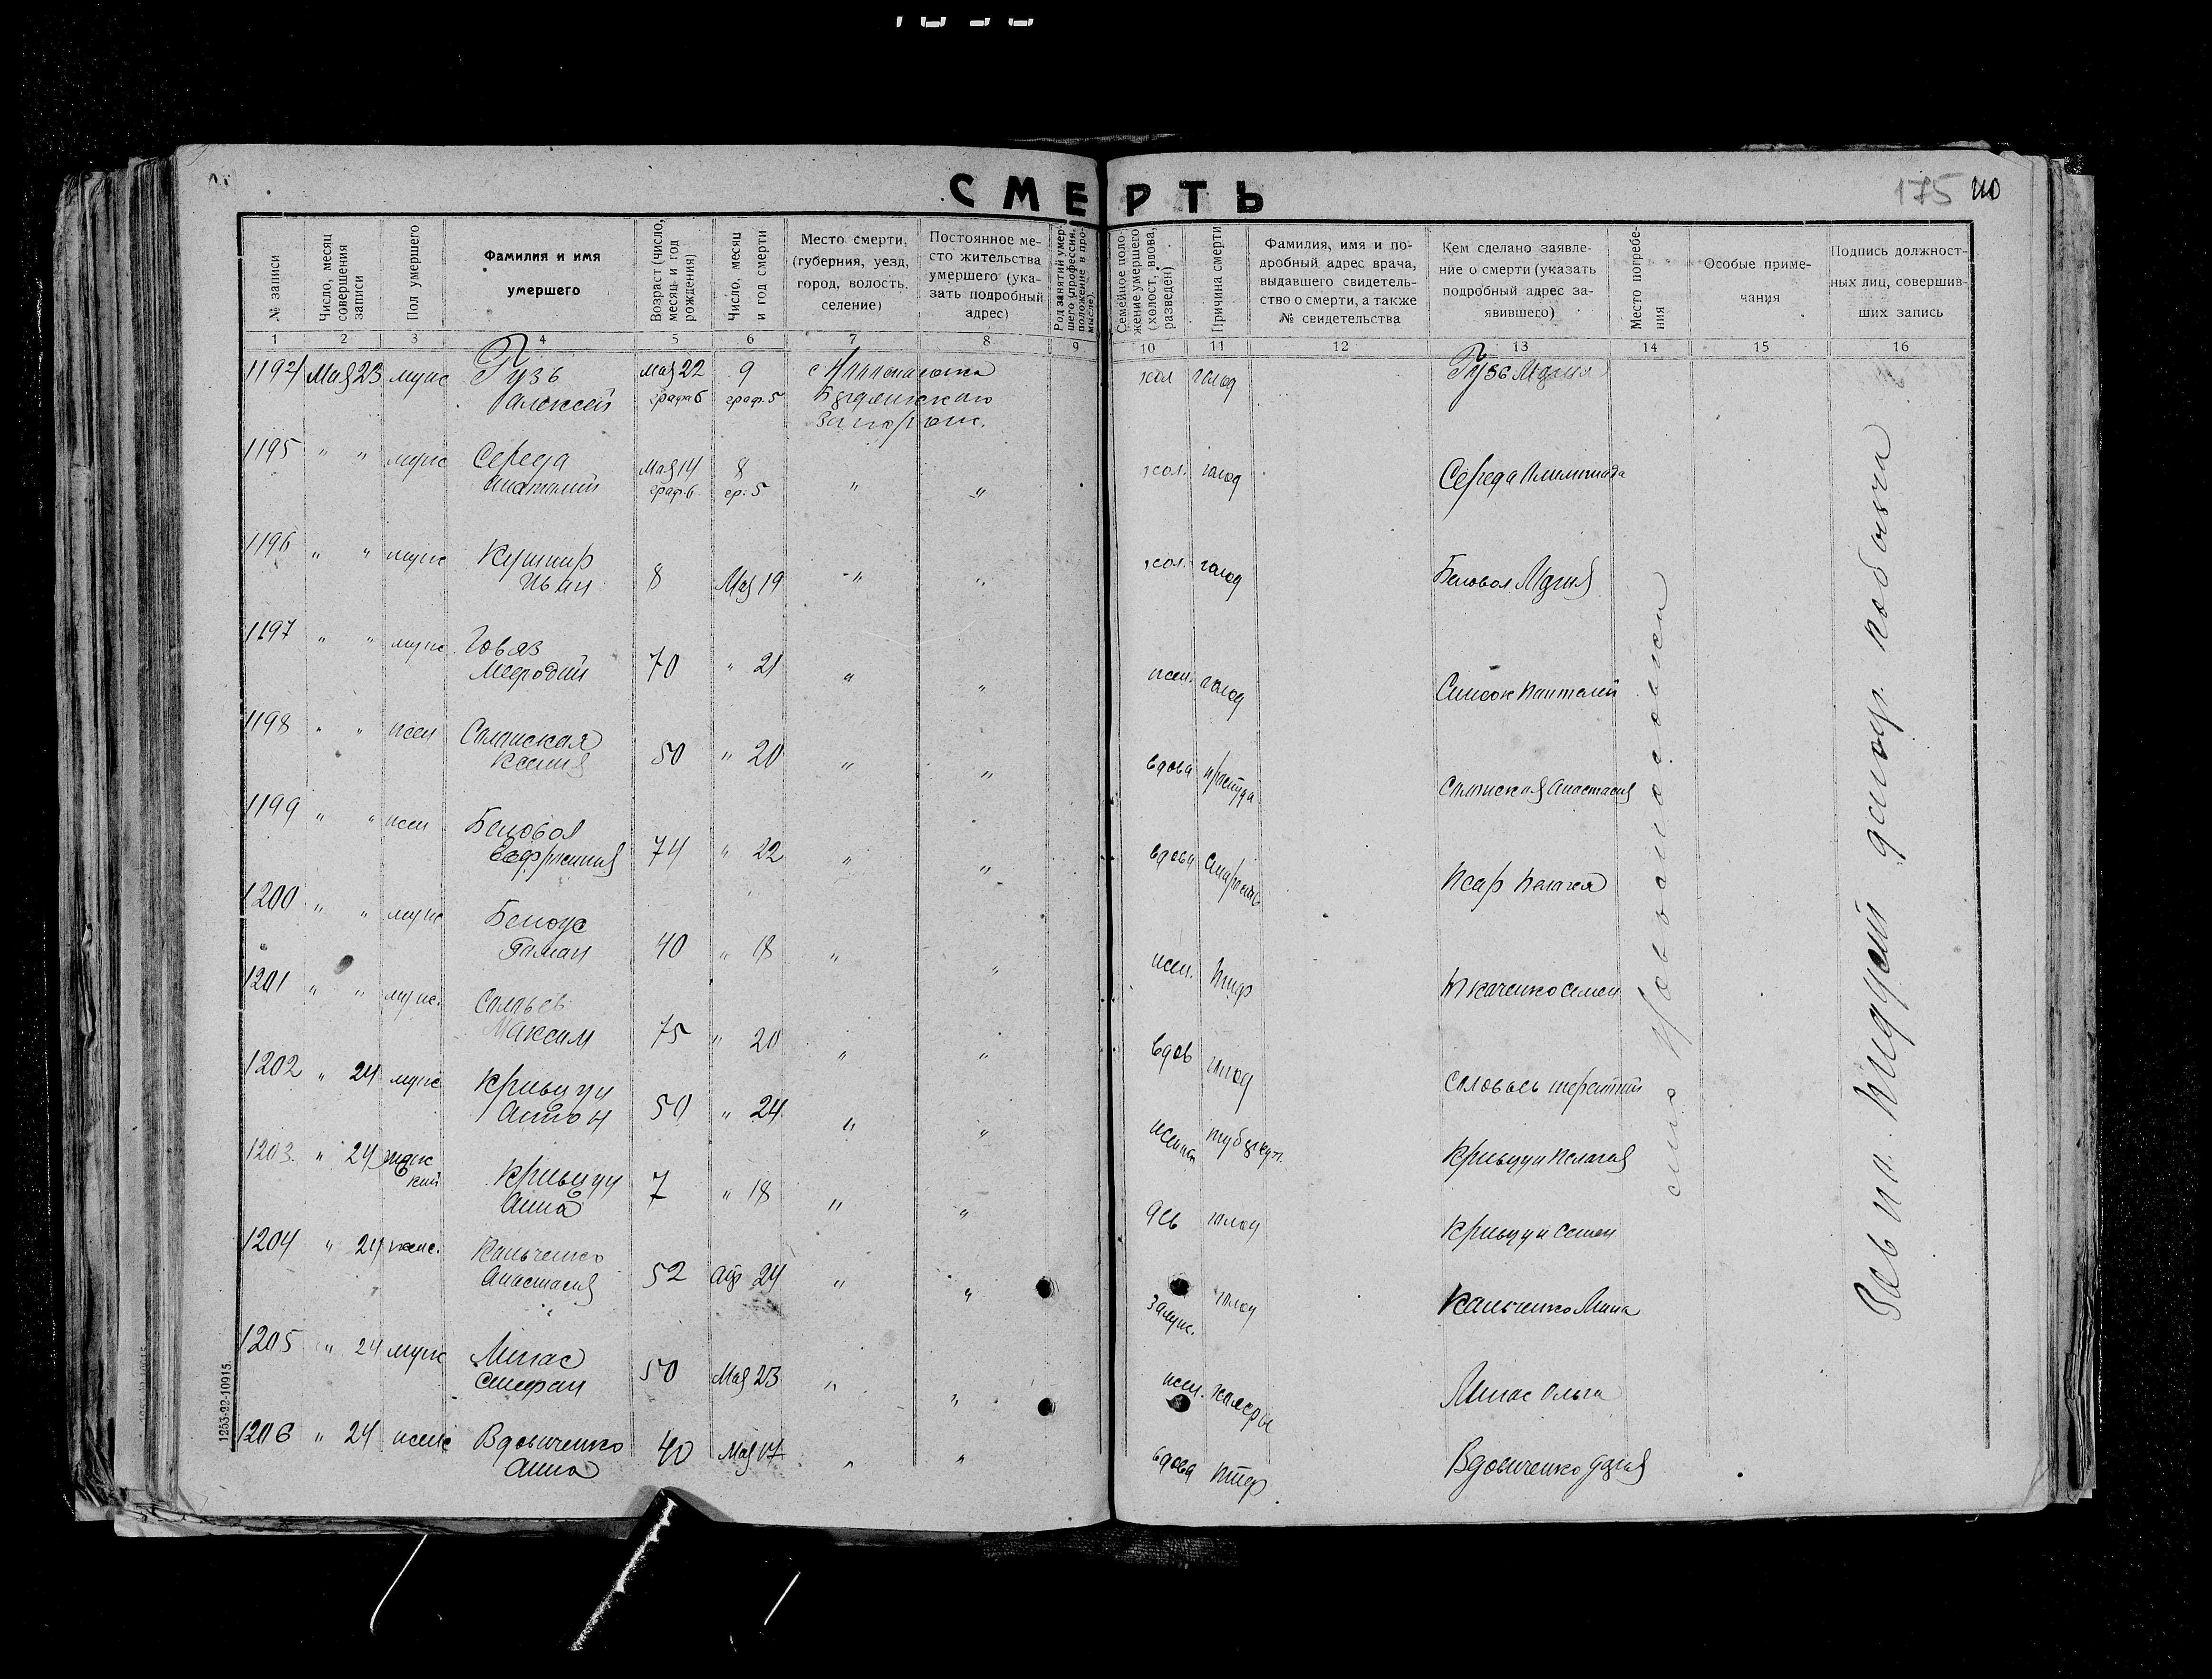 СМЕРТЬ
175 110
№ записи
Число, месяц совершения записи
Пол умершего
Фамилия и имя умершего
Возраст (число, месяц и год рождения)
Число, месяц и год смерти
Место смерти, (губерния, уезд, город, волость, селение)
Постоянное место жительства умершего (указать подробный адрес)
Род занятий умершего (профессия, положение в промысле)
Семейное положение умершего (холост, вдова, разведен)
Причина смерти
Фамилия, имя и подробный адрес врача, выдавшего свидетельство о смерти, а также № свидетельства
Кем сделано заявление о смерти (указать подробный адрес заявившего)
Место погребения
Особые примечания
Подпись должностных лиц, совершивших запись
1 2 3 4 5 6 7 8 9 10 11 12 13 14 15 16
1194 Мая 23 муж Гузь Мая 22 9 хол голод Гузь Мария
Алексей граф 6 граф. 5
1195 " " муж Середа Мая 14 8 хол. голод Середа Олимпиада
Анатолий граф. 6 гр. 5 " "
1196 " " муж Кушнир хол. голод Беловол Мария
Иван 8 Мая 19 " "
1197 " " муж Говяз жен. голод
Мефодий 70 " 21 " "
1198 " " жен вдова простуда
Ксения 50 " 20 " "
1199 " " жен Беловол вдова старость Псар Пелагея
Евфросиния 74 " 22 " "
1200 " " муж Белоус жен. тиф Ткаченко Семен
Роман 40 " 18 " "
1201 " " муж. вдов голод
Максим 75 " 20 " "
1202 " 24 муж Кривцун женат туберкул. Кривцун Пелагея
Антон 50 " 24 " "
1203 " 24 Кривцун дев голод Кривцун Семен
Анна 7 " 18 " "
1204 " 24 женс. Кальченко замуж. голод Кальченко Мина
Анастасия 52 Апр 24 " "
1205 " 24 муж Минас жен. Минас Ольга
Стефан 50 Мая 23 " "
1206 " 24 женс Вдовиченко 40 Мая 17 " " вдова тиф Вдовиченко
Анна
1253-22-10915.